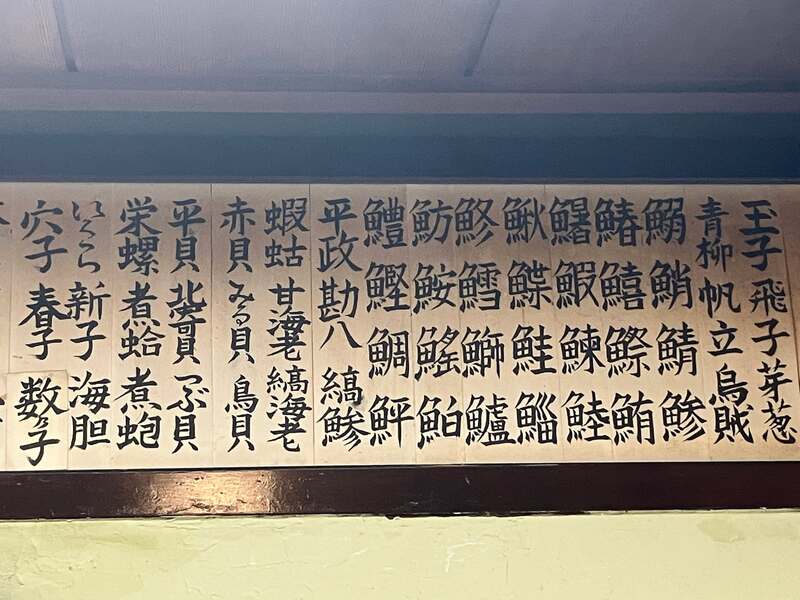 玉子 飛子 芽葱
青柳 帆立 烏賊
鰯 鮹 鯖 鯵
鰆 鱚 鰶 鮪
鰕 鰊 鯥
鰍 鰈 鮭 鯔
鮗 鱈 鰤 鱸
魴 鮟 鰩 鮊
鱧 鰹 鯛 鮃
平政 勘八 縞鯵
蝦蛄 甘海老 縞海老
赤貝 みる貝 鳥貝
平貝 北寄貝 つぶ貝
栄螺 煮蛤 煮蚫
いくら 新子 海胆
穴子 春子 数の子